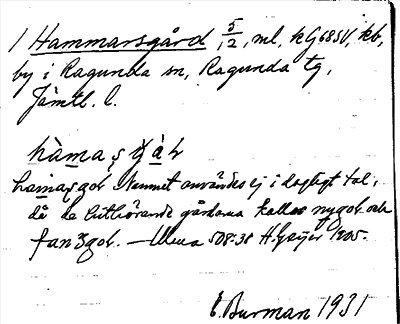 1 Hammarsgård 5/12, ml, kG68SV, kb,
by i Ragunda sn, Ragunda tg,
Jämtl. l.
hàmaṣ gàḷ
hamaṣgoḷ Namnet användes ej i dagligt tal,
då de tillhörande gårdarna kallas nygoḷ och
508:38 H. Geijer 1905.
E. Burman 1931